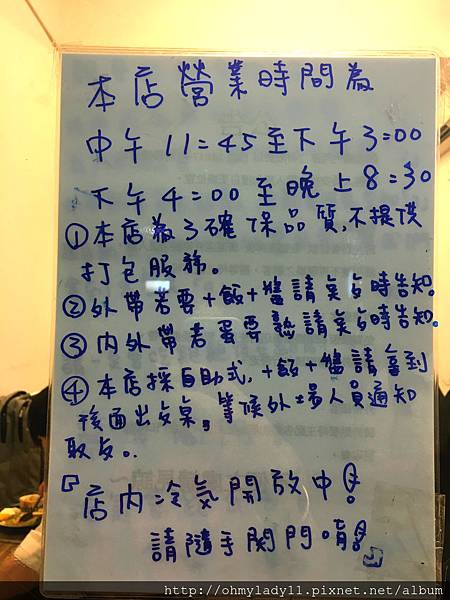 本店營業時間為
中午 11=45 至下午 3=00
下午 4=00 至晚上 8=30
①本店為了確保品質,不提供
打包服務。
②外帶若要+飯+醬請點餐時告知。
③內外帶若蛋要熟請點餐時告知。
④本店採自助式,+飯+醬請拿到
後面出餐桌,等候外場人員通知
取餐。
『店內冷氣開放中!
請隨手関門唷!』
http://ohmylady11.pixnet.net/album